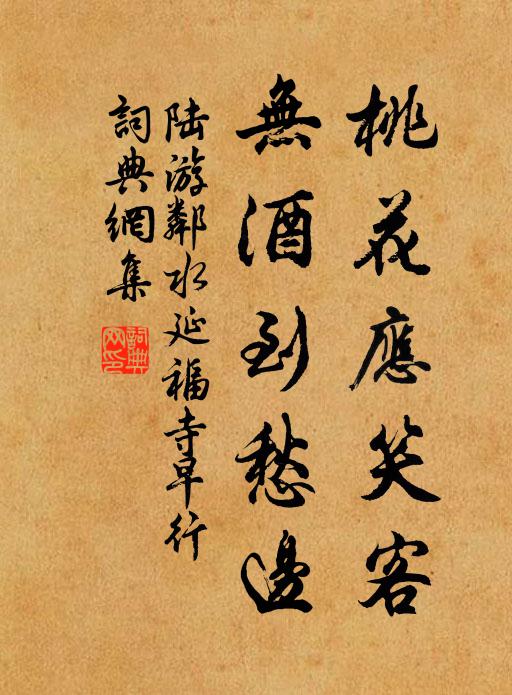 桃花應笑客
無酒到愁邊
陸游鄰水延福寺早行
詞典網集
詞典網印